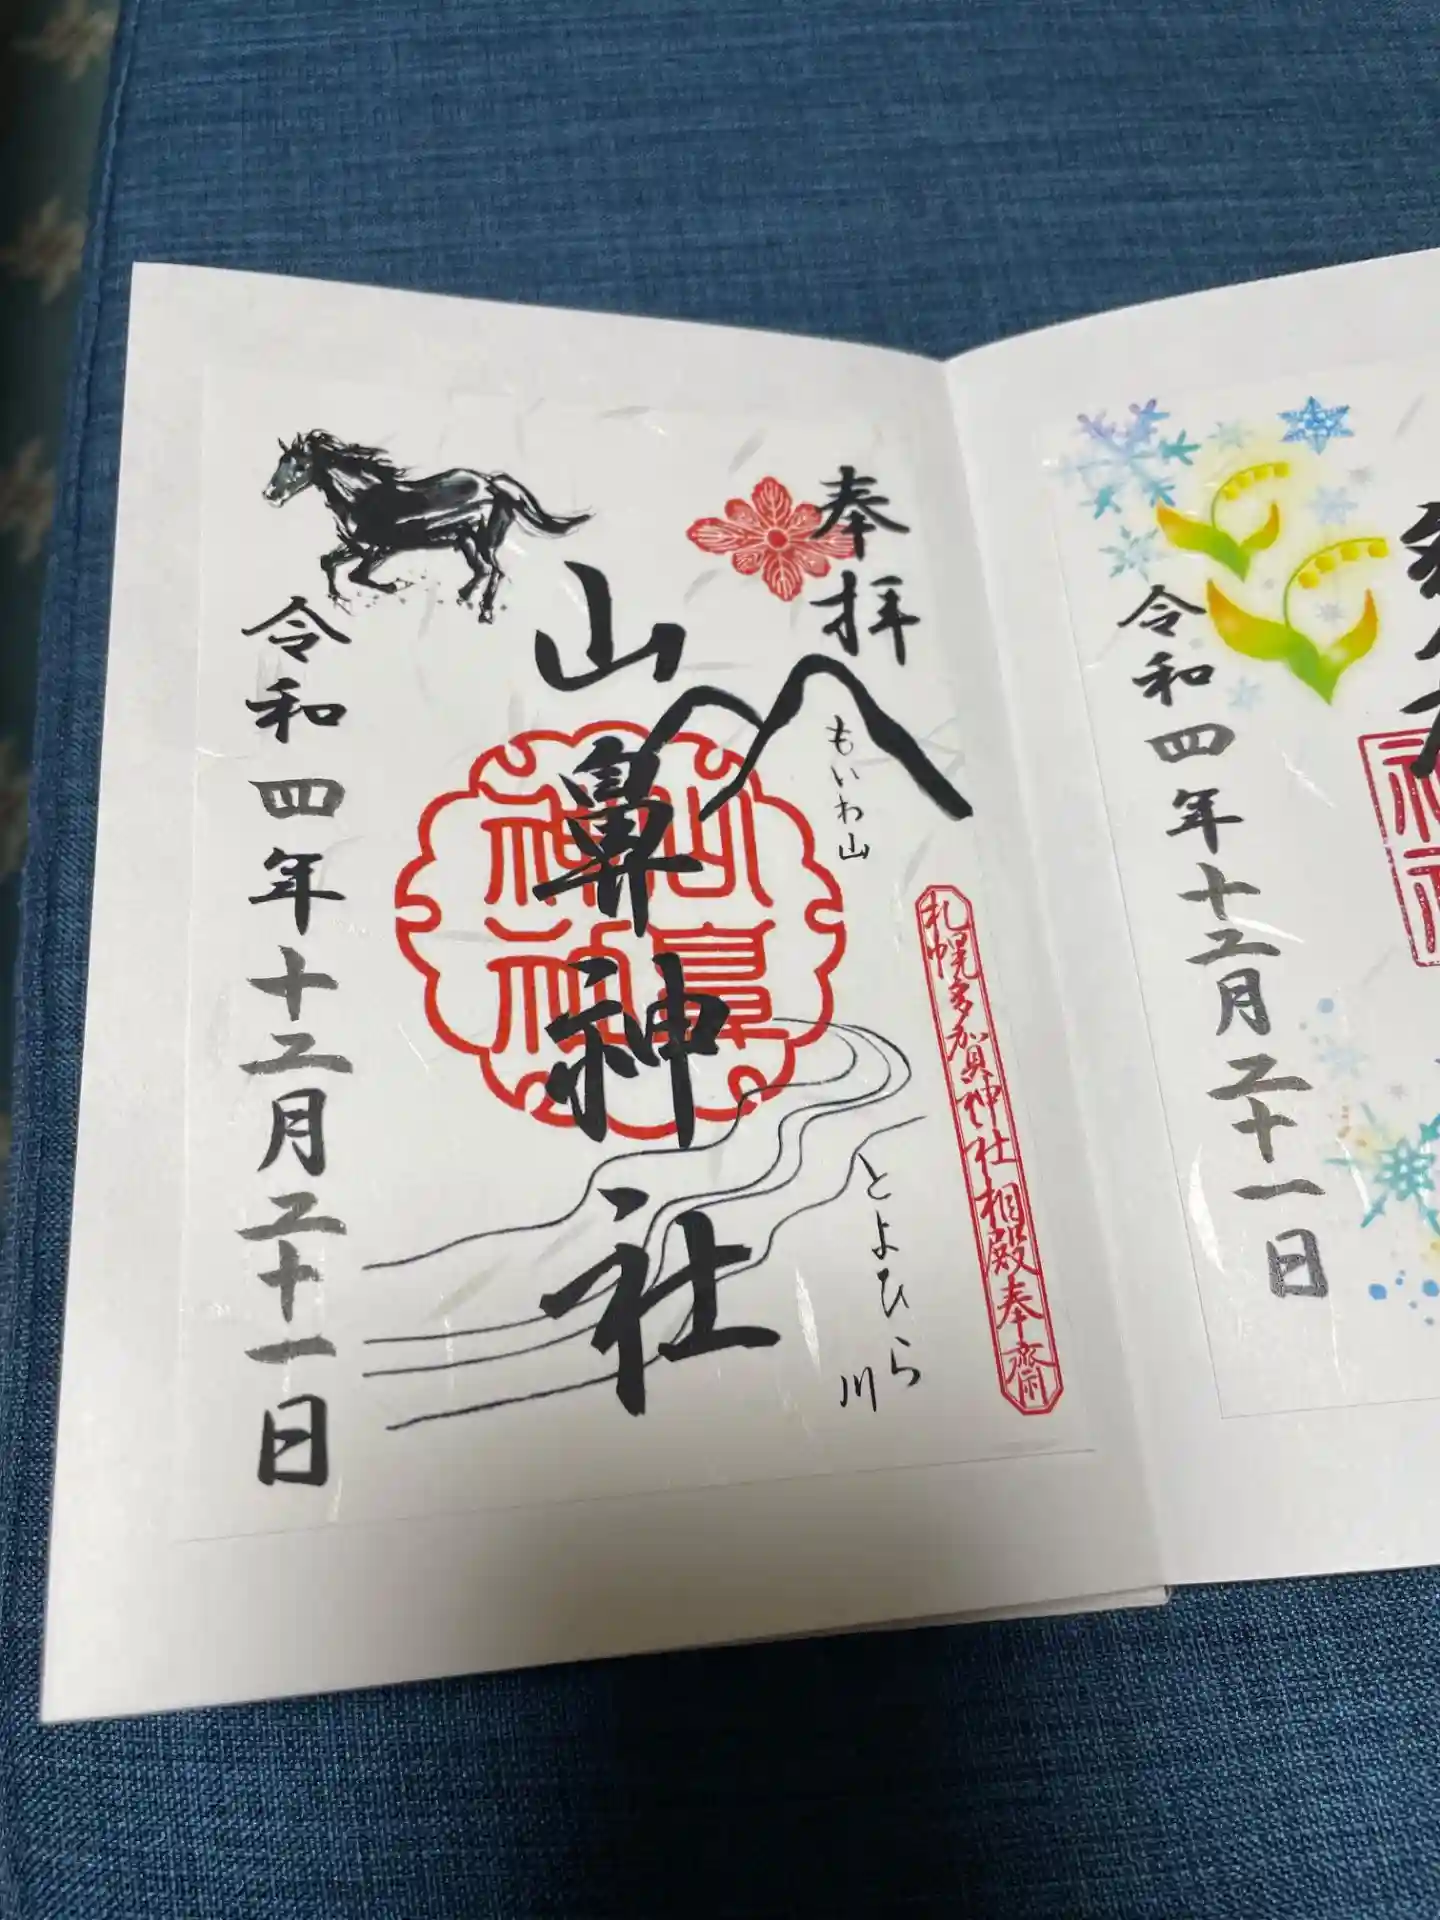 奉拝
もいわ山
札幌多賀神社相殿奉齋
とよひら川
山鼻神社
山鼻神社
令和四年十二月二十一日
令和四年十二月二十一日